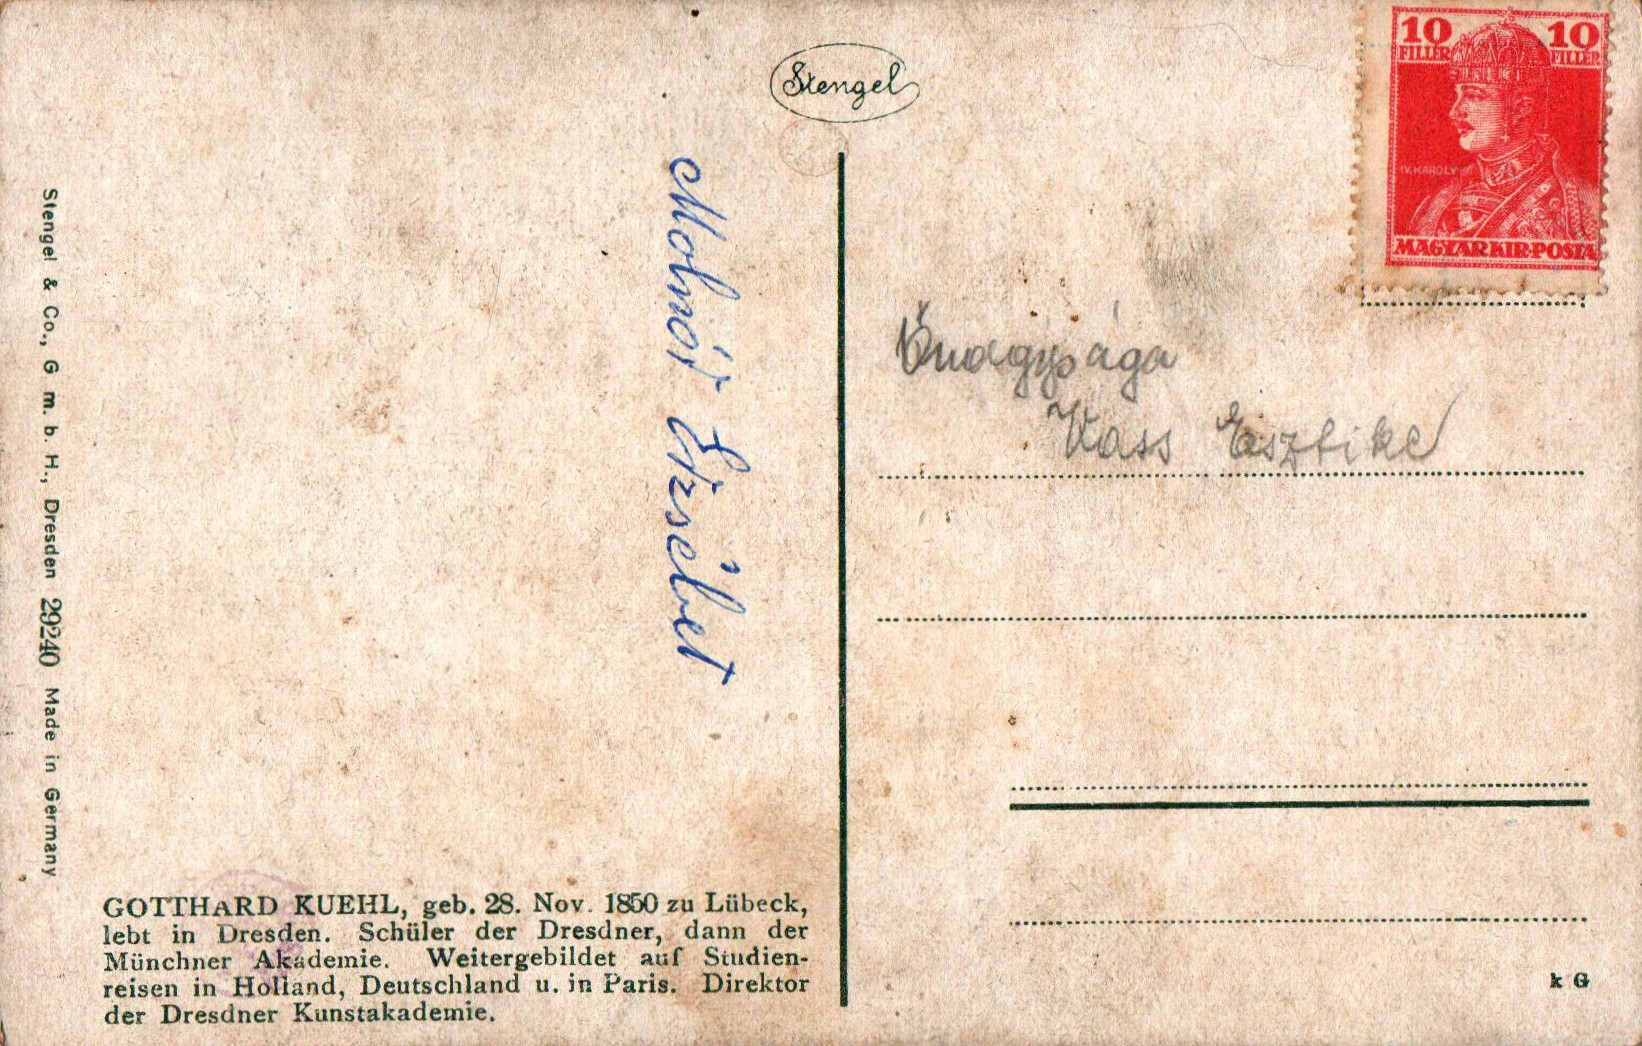 Stengel
10 10
FILLÉR FILLÉR
IV. KÁROLY
MAGYAR KIR. POSTA
Őnagysága
Vass Esztike
Molnár Erzsébet
Stengel & Co., G. m. b. H., Dresden 29240 Made in Germany
GOTTHARD KUEHL, geb. 28. Nov. 1850 zu Lübeck,
lebt in Dresden. Schüler der Dresdner, dann der
Münchner Akademie. Weitergebildet auf Studien-
reisen in Holland, Deutschland u. in Paris. Direktor
der Dresdner Kunstakademie.
k G